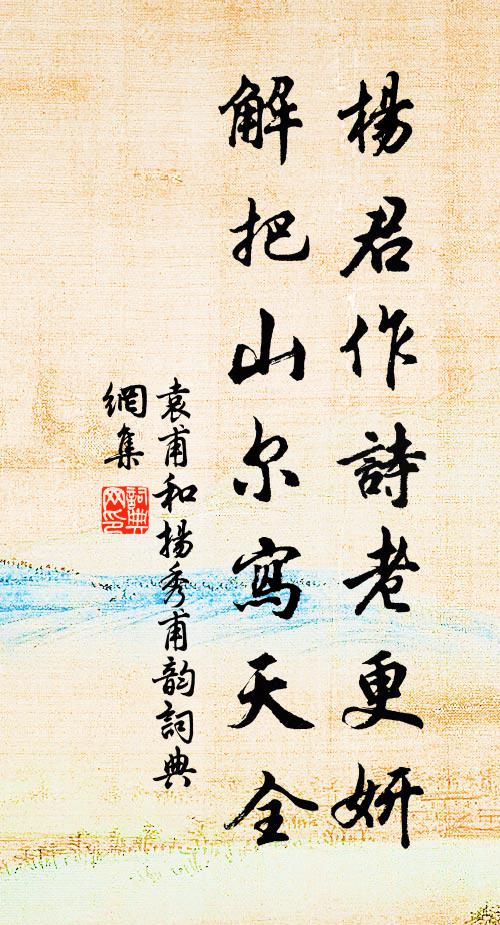 楊君作詩老更妍
解把山尔寫天全
袁甫和揚秀甫韵詞典
網集
詞典
网印